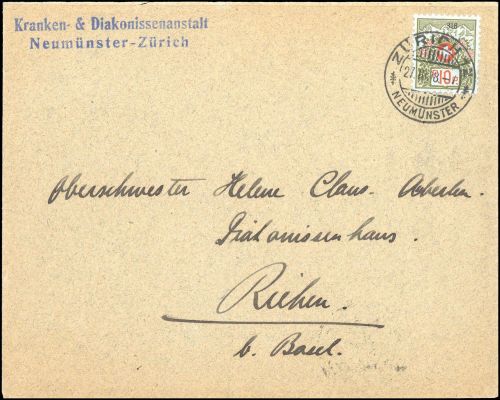 Kranken- & Diakonissenanstalt
Neumünster-Zürich
318
ZÜRICH
10
NEUMÜNSTER
Oberschwester Helene Claus-
Diakonissenhaus.
Riehen.
b. Basel.